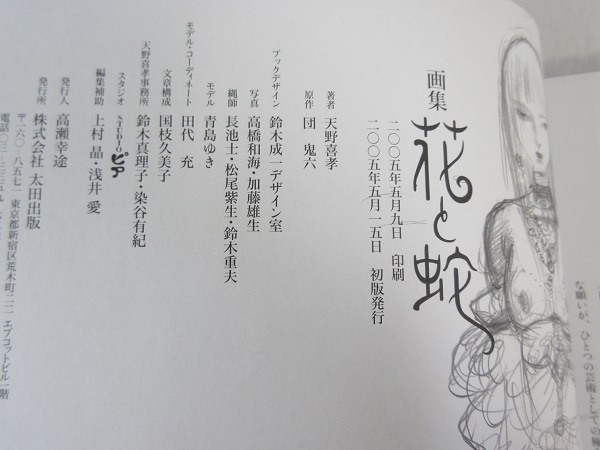 画集
花と蛇
二〇〇五年五月九日 印刷
二〇〇五年五月一五日 初版発行
著者 天野喜孝
原作 団 鬼六
ブックデザイン 鈴木成一デザイン室
写真 高橋和海・加藤雄生
縄師 長池士・松尾紫生・鈴木重夫
モデル 青島ゆき
モデル・コーディネート 田代 充
文章構成 国枝久美子
天野喜孝事務所 鈴木真理子・染谷有紀
スタジオ STUDIOピア
編集補助 上村 晶・浅井 愛
発行人 高瀬幸途
発行所 株式会社 太田出版
〒一六〇-八五七一 東京都新宿区荒木町二二 エプコットビル一階
電話〇三-三三五九
な願いが、ひとつの芸術としての